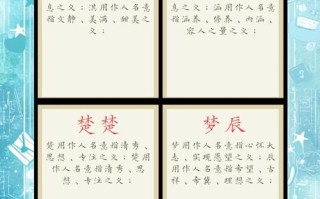 息之义；洪用作人名意
指文静、美满、甜美之
义；
意之义；涵用作人名意
指涵养、修养、内涵、
容人之量之义；
楚楚
楚用作人名意指清秀、
思想、专注之义；楚用
作人名意指清秀、思
想、专注之义；
梦辰
梦用作人名意指心怀大
志、实现愿望之义；辰
用作人名意指希望、吉
祥、希冀、理想之义；